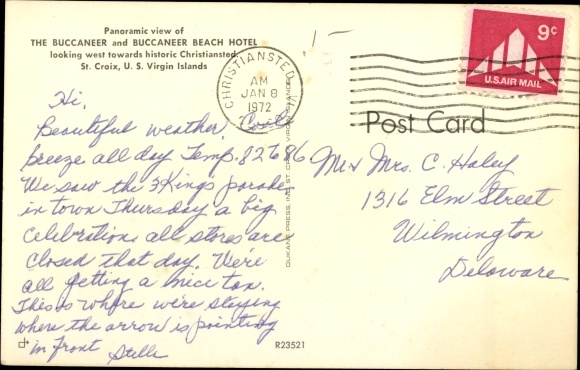 Panoramic view of
THE BUCCANEER and BUCCANEER BEACH HOTEL
looking west towards historic Christiansted
St. Croix, U. S. Virgin Islands
Hi,
Beautiful weather. Cool
breeze all day Temp. 82 to 86
We saw the 3 Kings parade
in town Thursday a big
celebration all stores are
closed that day. We're
all getting a nice tan.
This is where we're staying
where the arrow is pointing
in front Stelle
CHRISTIANSTED, V.I.
AM
JAN 8
1972
9c
U.S. AIR MAIL
Post Card
Mr & Mrs. C. Haley
1316 Elm Street
Wilmington
Delaware
DUKANE PRESS, INC. ST. CROIX, VIRGIN ISLANDS
R23521